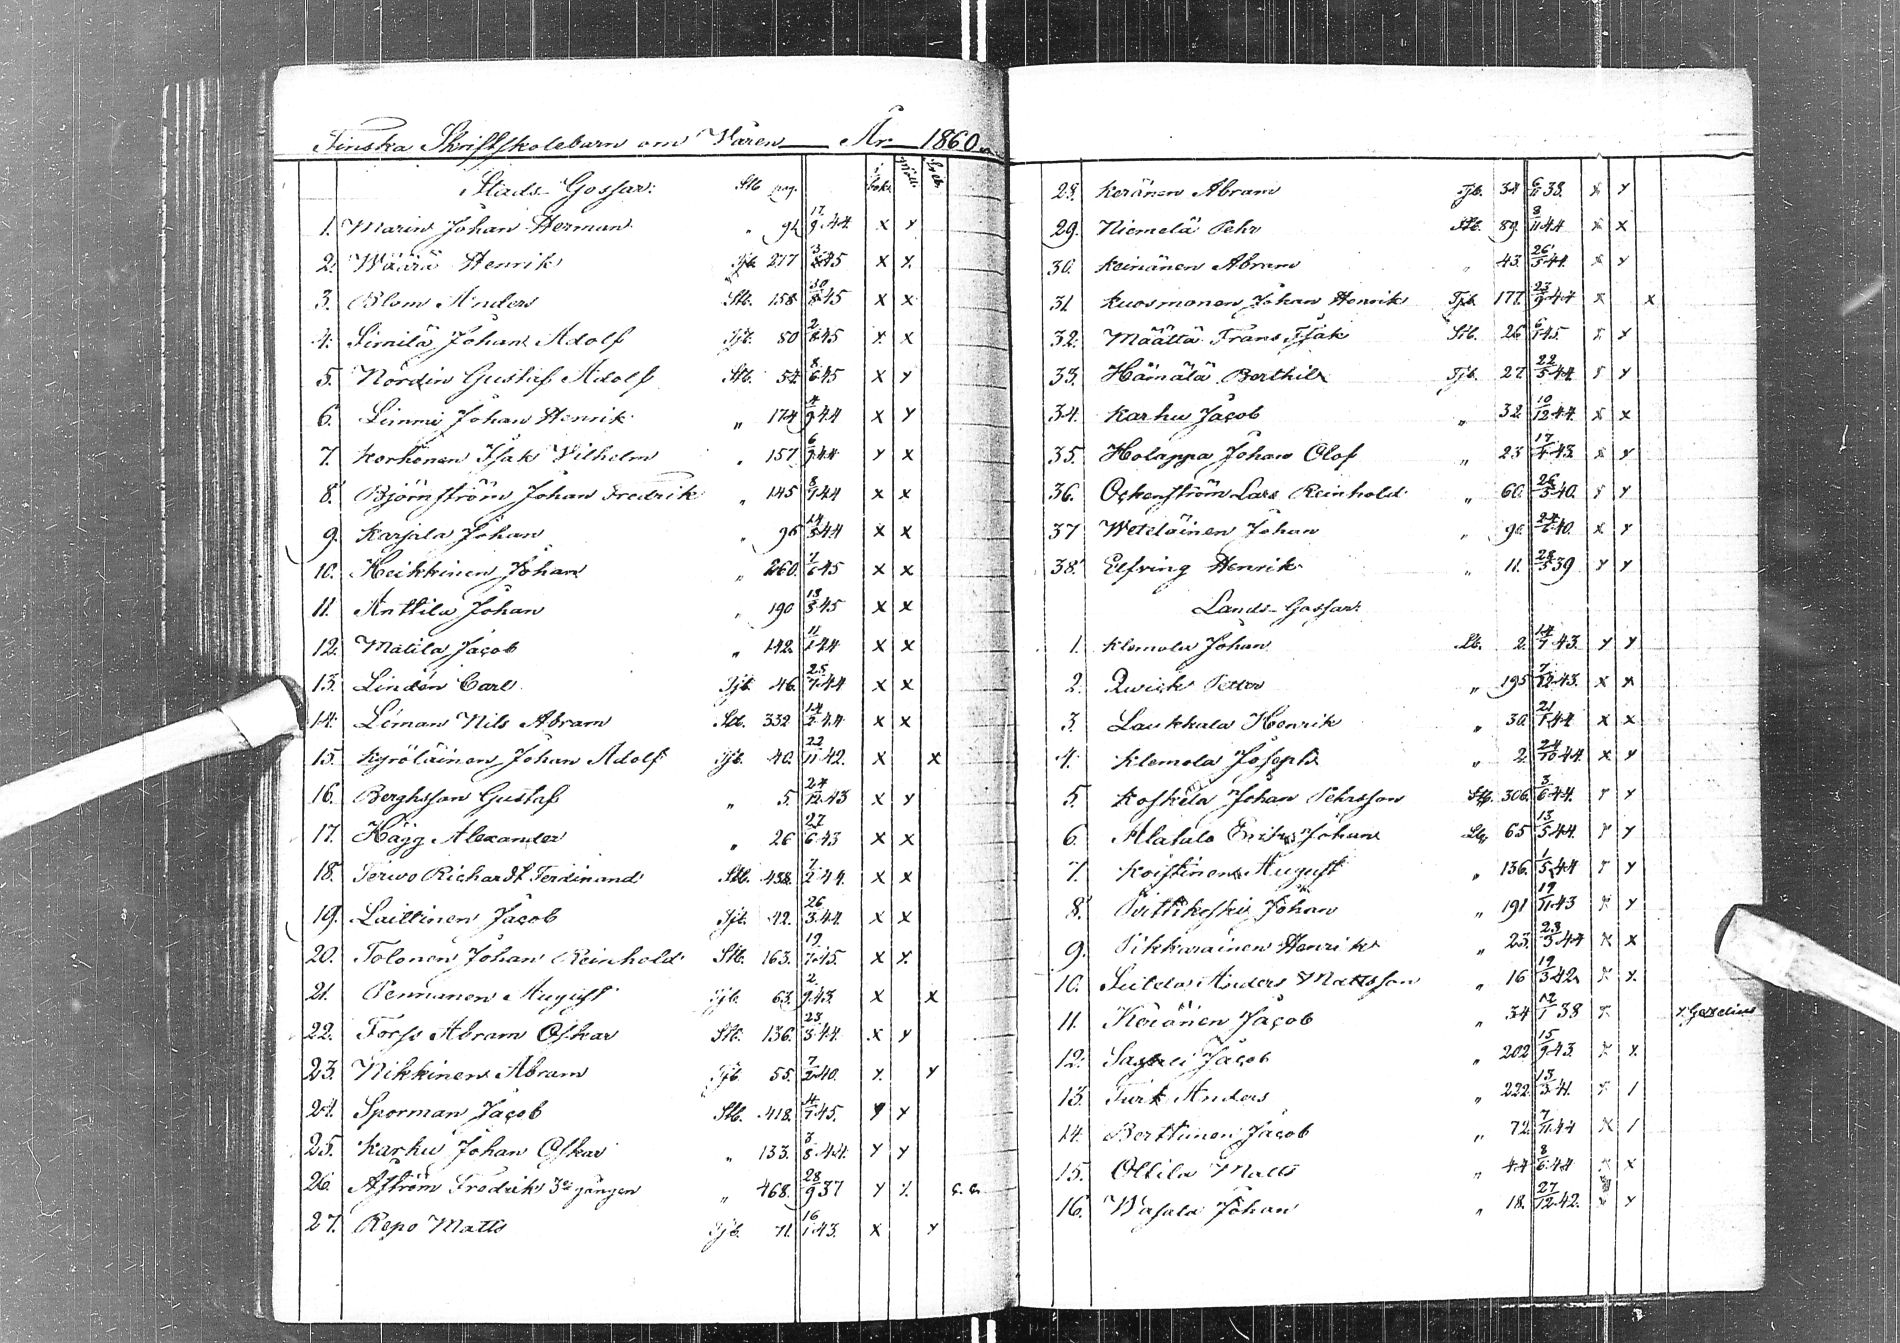 Finska Skriftskolebarn om Våren År 1860.
Stads Gossar: Stb pag. i bok.
1. Marin Johan Herman " 91 17/9 44 x x
2. Wäärä Henrik Tjb. 277 45 x x
3. Blom Anders Stb. 158 30/8 45 x x
4. Similä Johan Adolf Tjb. 80 45 x x
5. Nordin Gustaf Adolf Stb. 54 8/6 45 x x
6. Limmi Johan Henrik " 174 4/9 44 x x
7. Korhonen Isak Vilhelm " 157 44 x x
8. Björnström Johan Fredrik " 145 44 x x
9. Karjala Johan " 96 14/3 44 x x
10. Heikkinen Johan " 260. 45 x x
11. Anttila Johan " 190 13/3 45 x x
12. Matila Jacob " 142. 11/1 44 x x
13. Lindén Carl Tjb. 46. 25/7 44 x x
14. Liman Nils Abram Stb. 332 44 x x
15. Kyröläinen Johan Adolf Tjb. 40. 22/11 42. x x
16. Berghsson Gustaf " 5. 27/12 43 x x
17. Hägg Alexander " 26 27/6 43 x x
18. Terwo Richardt Ferdinand Stb. 438. 7/2 44. x x
19. Laittinen Jacob Tjb. 42. 26/3 44 x x
20. Tolonen Johan Reinhold Stb. 163. 19/7 45. x x
21. Pennanen August Tjb. 63. 2/9 43. x x
22. Forss Abram Oskar Stb. 136. 23/3 44. x x
23. Nikkinen Abram Tjb. 55. 7/2 40. x x
24. Sporman Jacob Stb. 418. 4/7 45. x x
25. Karhu Johan Oskar " 133. 3/8 44. x x
26. Åström Fredrik 3de gången " 468. 28/9 37 x x
27. Repo Matts Tjb. 71. 16/1 43. x x
28. Keränen Abram Tjb. 34 6/11 38. x x
29. Niemelä Pehr Stb. 89. 8/11 44 x x
30. Keinänen Abram " 43. 26/5 44. x x
31 Kuosmonen Johan Henrik Tjb. 177. 23/9 44 x x
32. Määttä Frans Isak Stb. 26 6/1 45. x x
33. Hämälä Berthil Tjb. 27. 22/5 44. x x
34. Karhu Jacob " 32. 10/12 44. x x
35. Holappa Johan Olof " 23 43. x x
36. Ockenström Lars Reinhold " 60. 26/3 40. x x
37 Weteläinen Johan " 90. 40. x x
38. Elfving Henrik " 11. 28/3 39 x x
Lands-Gossar:
1. Klemola Johan Lb. 2. 14/7 43. x x
2. Qwick Petter " 195 7/12 43. x x
3. Laukkala Henrik " 30. 21/1 44 x x
4. Klemola Joseph " 2. 24/10 44. x x
5. Koskela Johan Pehrsson Stb. 306. 3/6 44. x x
6. Alatalo Erik Johan Lb. 65 13/5 44. x x
7. Koistinen August " 136. 1/5 44 x x
8. Puttikoski Johan " 191 19/11 43 x x
9. Pikkarainen Henrik " 23. 23/3 44 x x
10. Suilda Anders Mattsson " 16 19/3 42. x x
11. Keränen Jacob " 34 12/1 38 x
12. Jacob " 202 15/9 43. x x
13. Turk Anders " 222. 13/3 41. x /
14. Berttunen Jacob " 72. 7/11 44 x /
15. Ollila Matts " 44 8/6 44 x x
16. Wasala Johan " 18. 27/12 42. x x